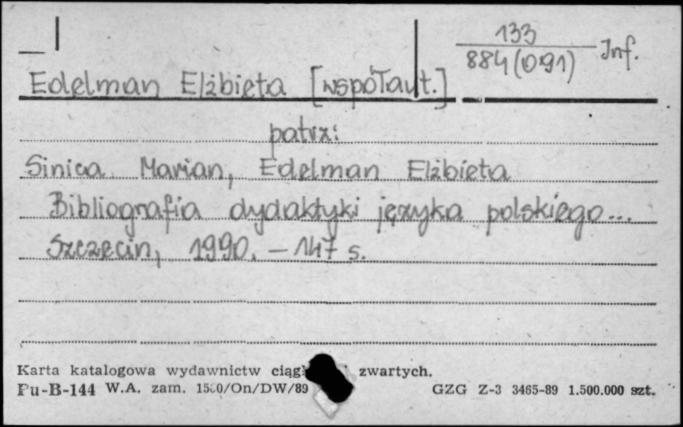 133
884(091) Inf.
Edelman Elżbieta [współaut.]
patrz:
Sinica Marian, Edelman Elżbieta
Bibliografia dydaktyki języka polskiego...
Szczecin, 1990. - 147 s.
Karta katalogowa wydawnictw zwartych.
Pu-B-144 W.A. zam. GZG Z-3 3465-89 1.500.000 szt.